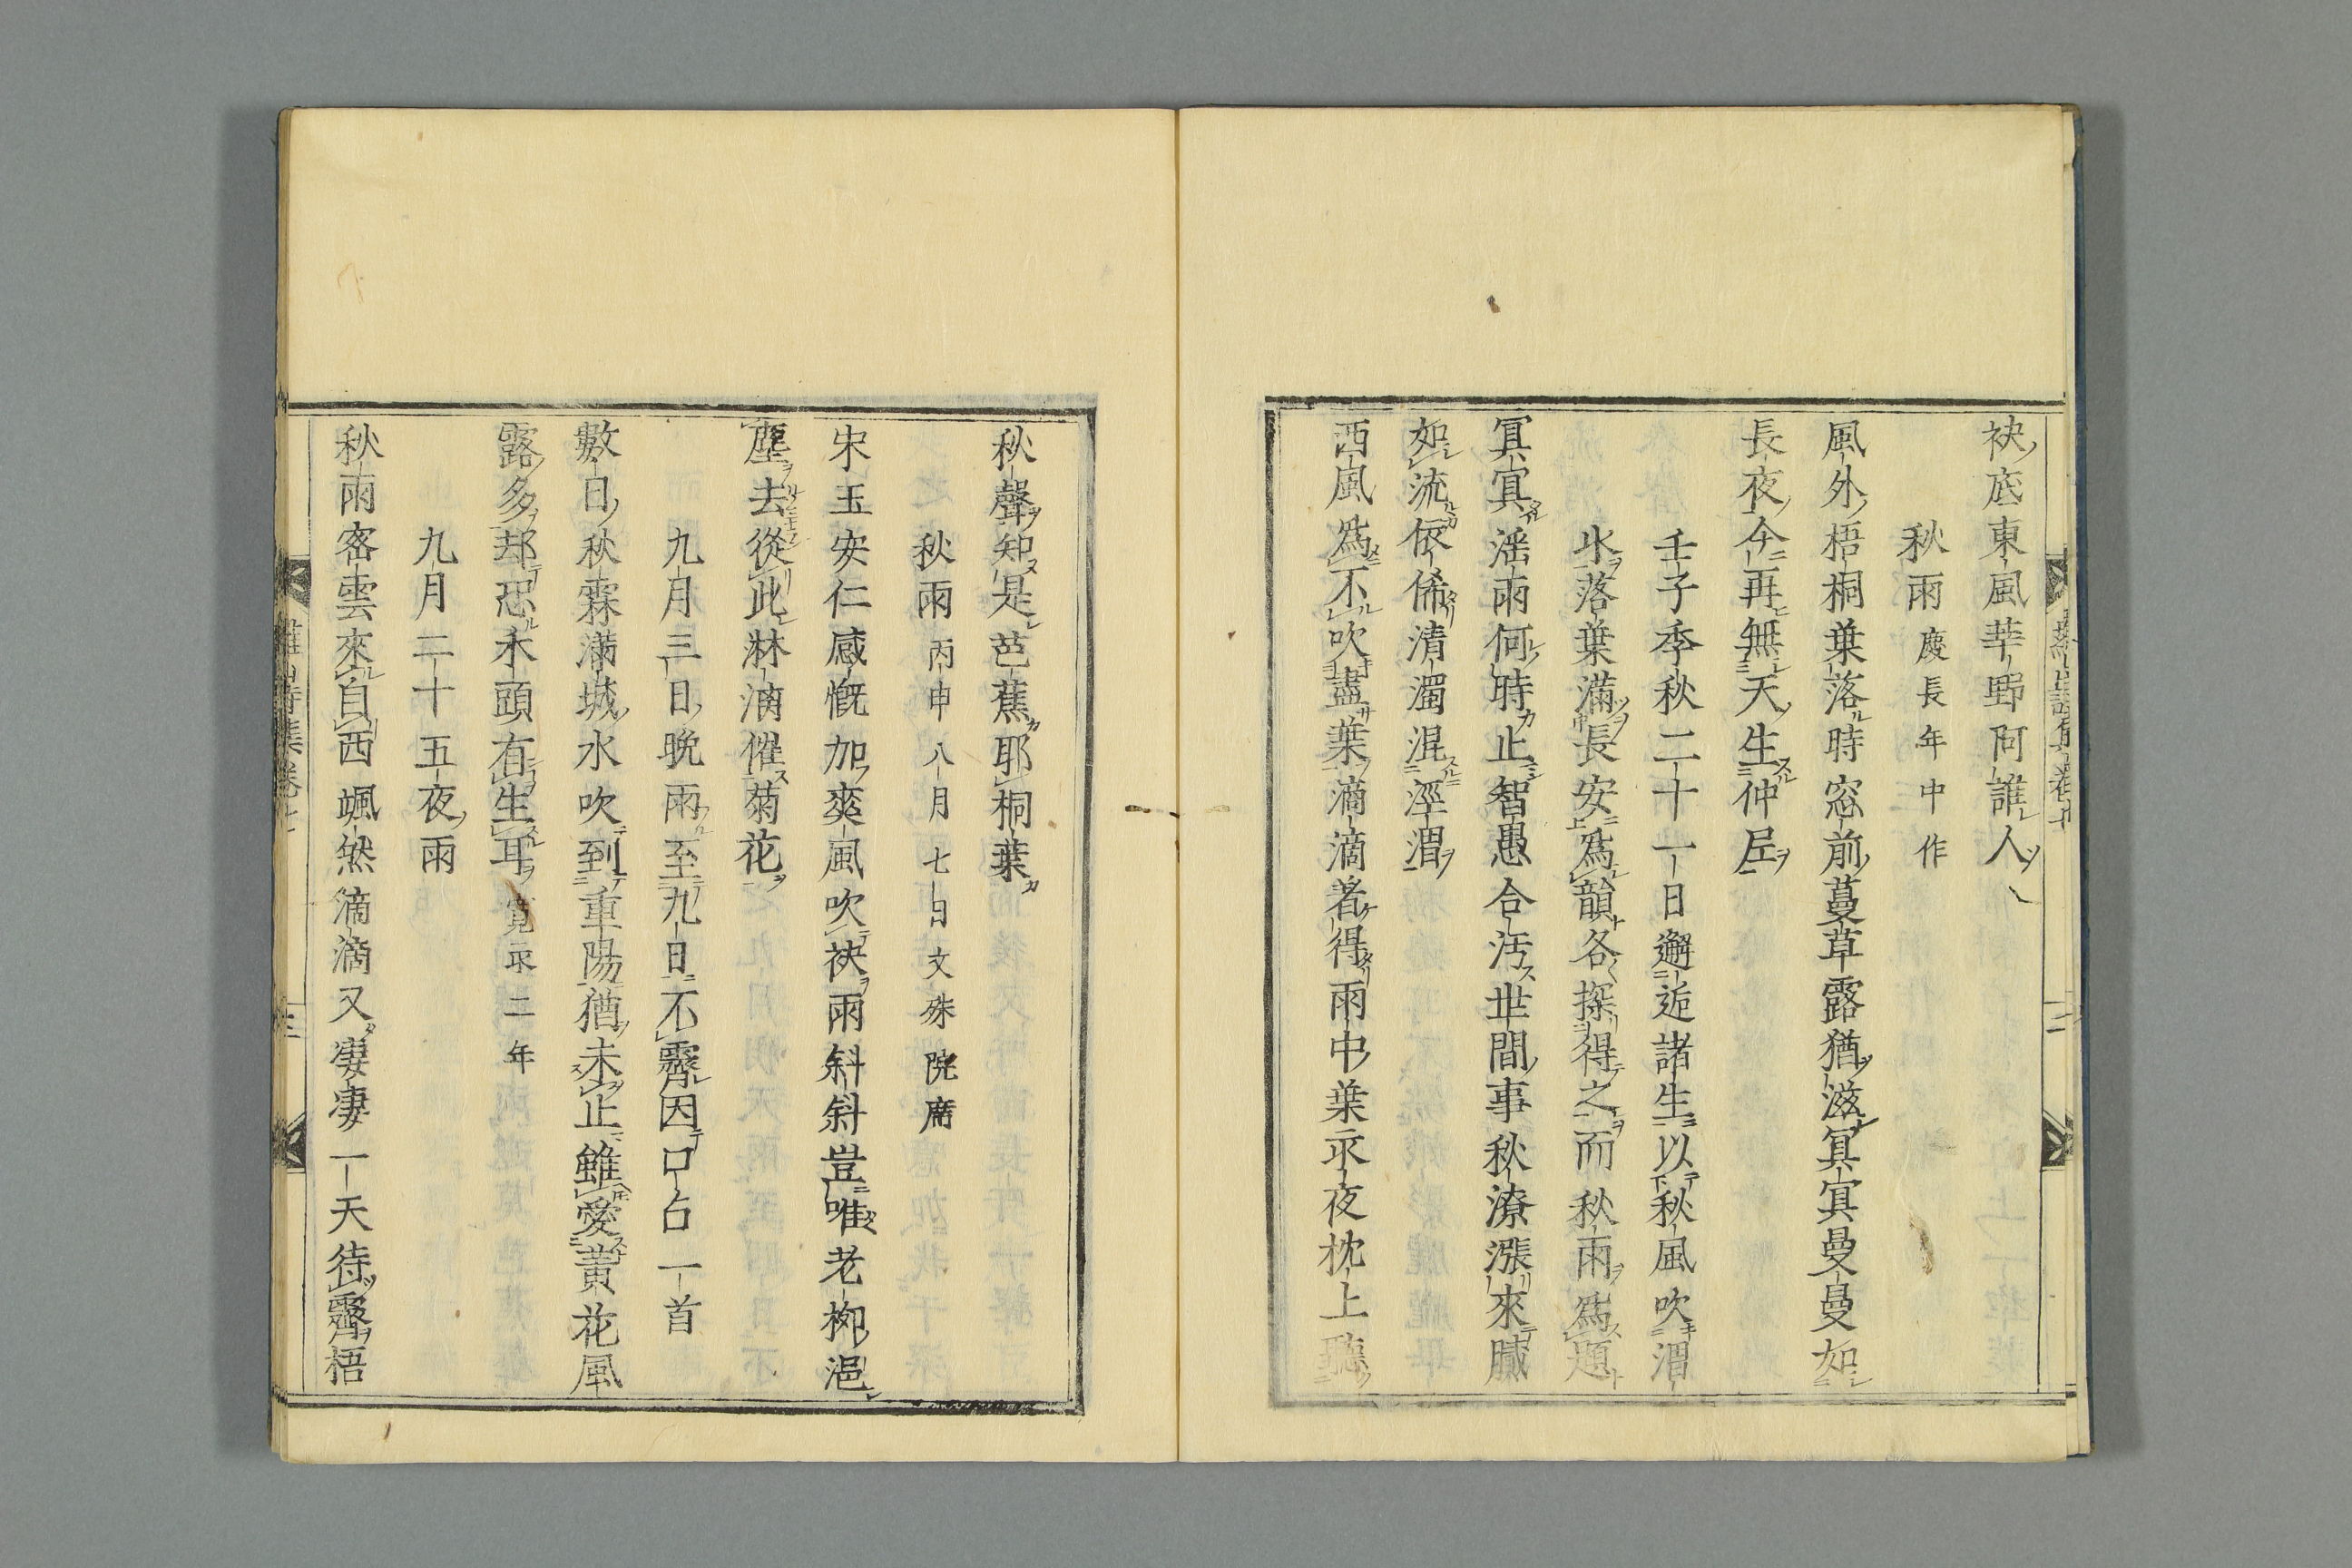 袂底東風華野阿誰人
秋雨慶長年中作
風外梧桐葉落時窓前蔓草露猶滋冥冥曼曼如
長夜今再無天生仲尼
壬子季秋二十一日邂逅諸生以秋風吹渭
水落葉滿長安爲韻各探得之而秋雨爲題
冥冥滛雨何時止智愚合汚世間事秋潦漲來臟
如流依俙清濁混涇渭
西風爲不吹盡葉滴滴著得雨中葉永夜枕上聽
秋聲知是芭蕉耶桐葉
秋雨丙申八月七日文殊院席
宋玉安仁感慨加爽風吹袂雨斜斜豈唯老柳浥
塵去從此淋漓催菊花
九月三日晩雨至九日不霽因口占一首
數日秋霖滿城水吹到重陽猶未止雖愛黃花風
露多却恐禾頭有生耳寛永二年
九月二十五夜雨
秋雨密雲來自西颯然滴滴又凄凄一天待霽梧
羅山詩集卷七